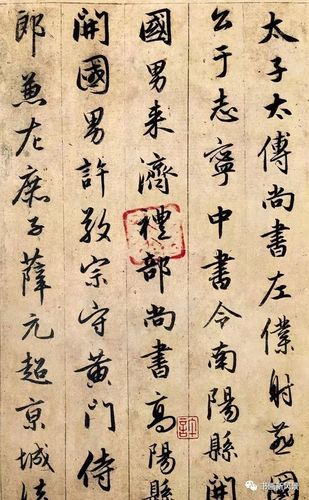 太子太傅尚書左僕射燕國
公于志寧中書令南陽縣開
國男来濟禮部尚書高陽縣
開國男許敬宗守黃門侍
郎兼左庶子薛元超京城